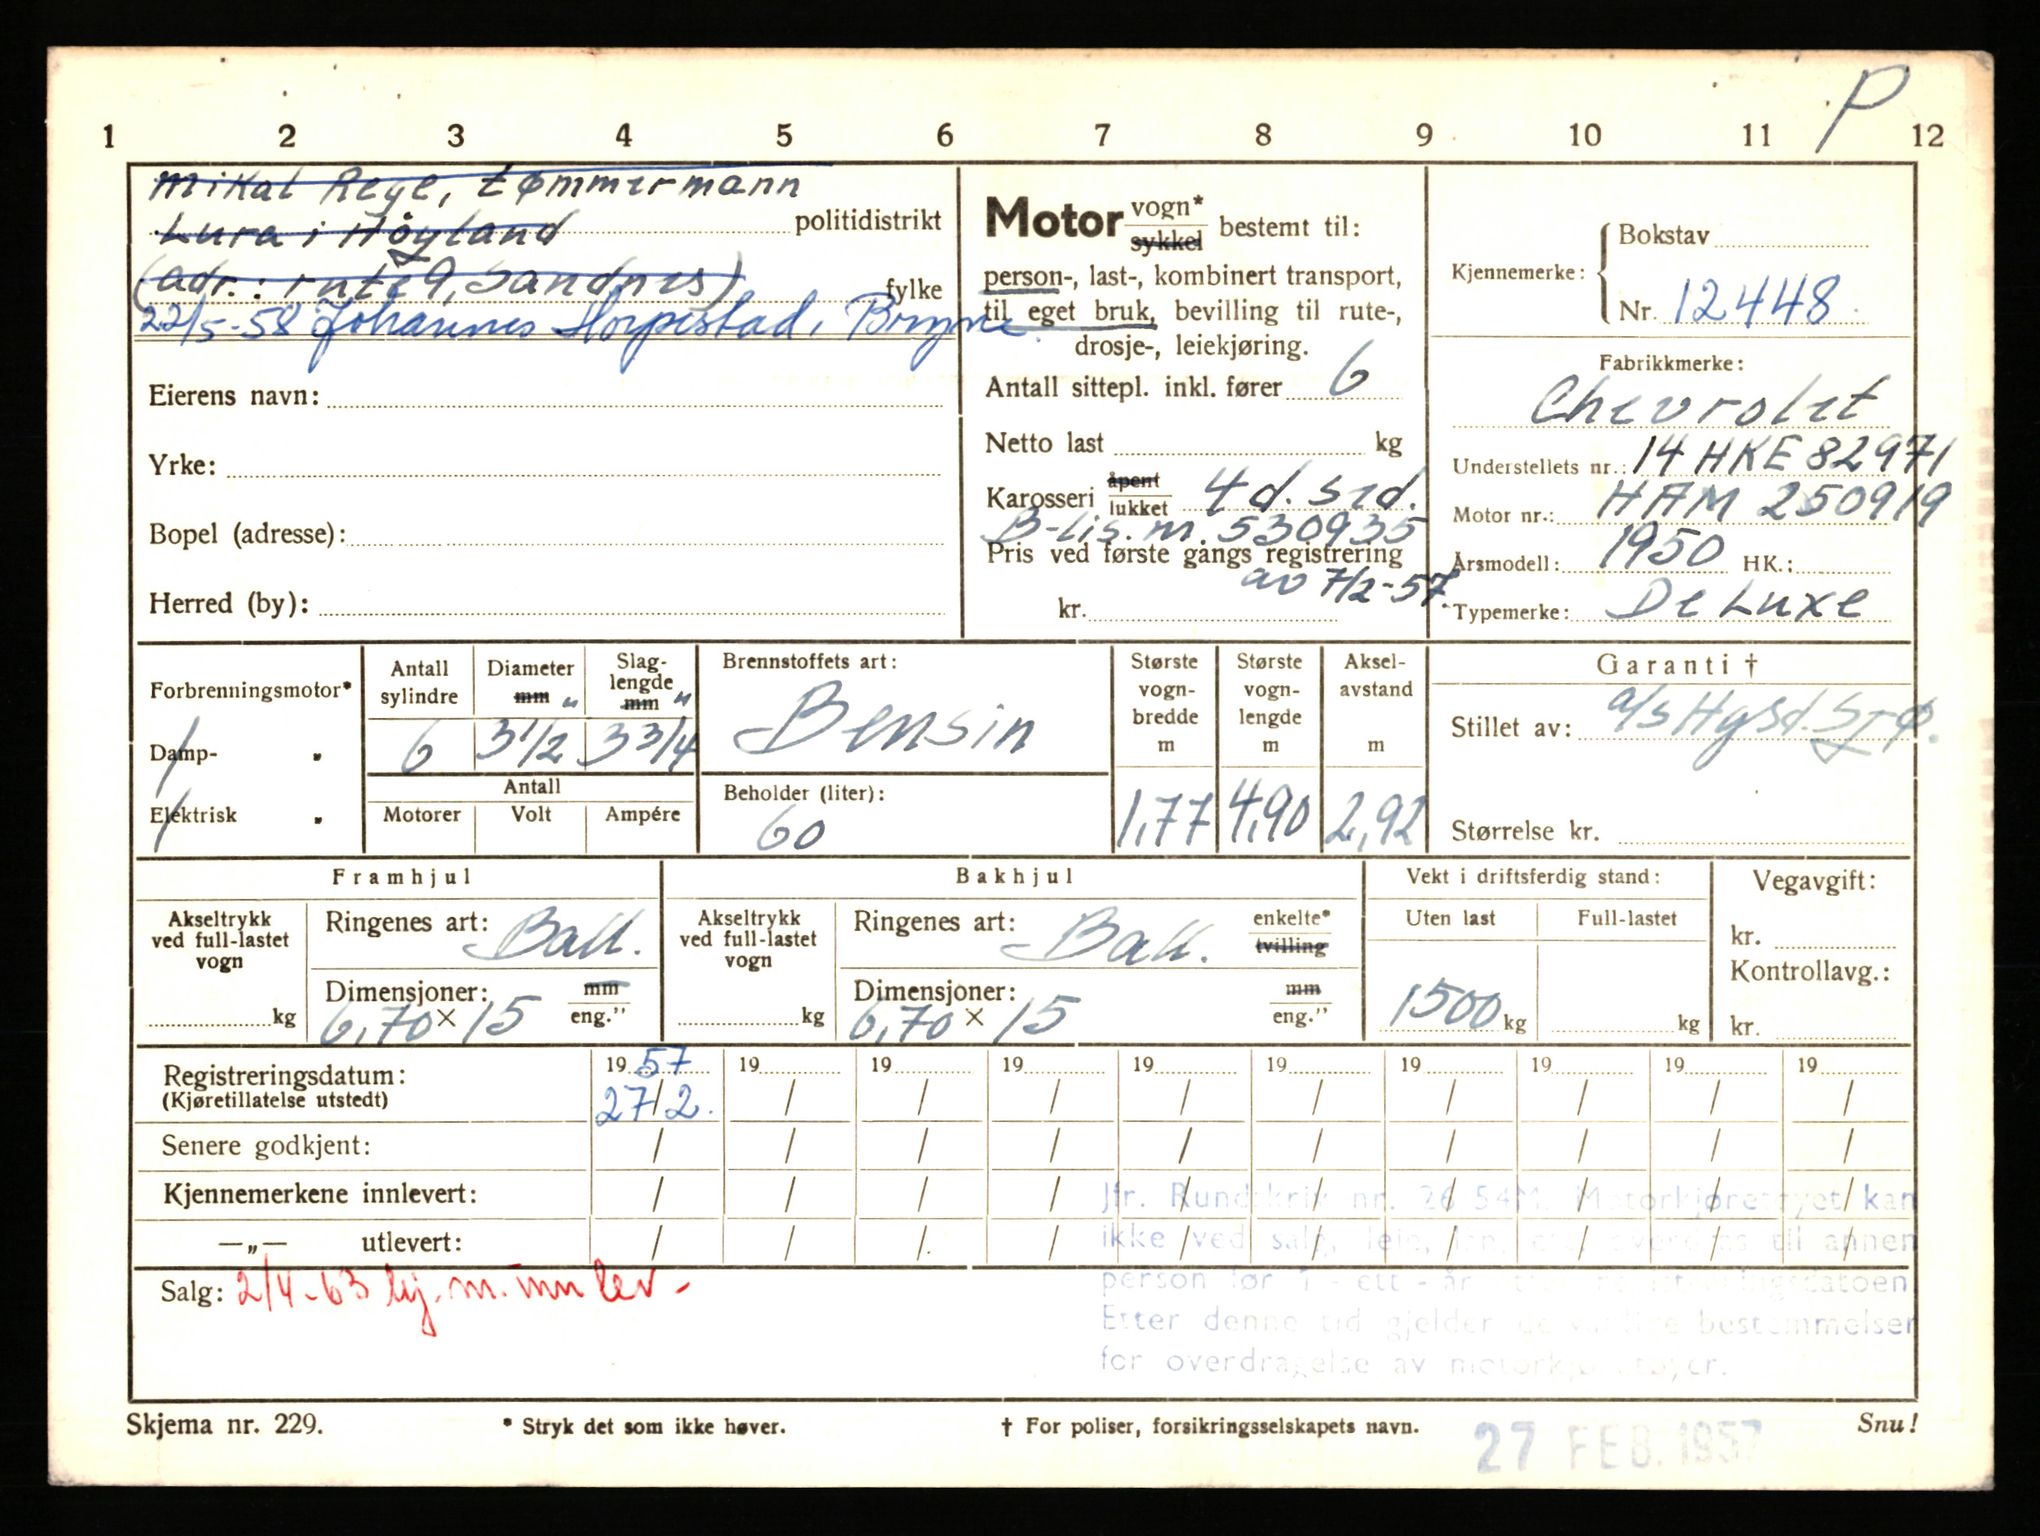 P
1 2 3 4 5 6 7 8 9 10 11 12
Mikal Rege, tømmermann
Lura i Høyland politidistrikt
(adr.: rute 9, Sandnes) fylke
22/5-58 Johannes Horpestad, Bryne.
Eierens navn:
Yrke:
Bopel (adresse):
Herred (by):
Motor vogn* sykkel bestemt til:
person-, last-, kombinert transport,
til eget bruk, bevilling til rute-,
drosje-, leiekjøring.
Antall sittepl. inkl. fører 6
Netto last kg
Karosseri åpent lukket 4 d. sed.
B-lis. m. 530935
Pris ved første gangs registrering
av 7/2-57.
kr.
Kjennemerke: Bokstav
Nr. 12448.
Fabrikkmerke:
Chevrolet
Understellets nr.: 14 HKE 82971
Motor nr.: HAM 250919
Årsmodell: 1950 HK.:
Typemerke: De Luxe
Forbrenningsmotor*
Damp- „
Elektrisk „
Antall sylindre
6
Diameter mm "
3 1/2
Slaglengde mm "
3 3/4
Antall
Motorer Volt Ampére
Brennstoffets art:
Bensin
Beholder (liter):
60
Største vognbredde m
1,77
Største vognlengde m
4,90
Akselavstand m
2,92
Garanti †
Stillet av: a/s Hgsd. Sjø.
Størrelse kr.
Framhjul
Akseltrykk ved full-lastet vogn
kg
Ringenes art: Ball.
Dimensjoner: mm
6,70 × 15 eng."
Bakhjul
Akseltrykk ved full-lastet vogn
kg
Ringenes art: Ball. enkelte* tvilling
Dimensjoner: mm
6,70 × 15 eng."
Vekt i driftsferdig stand:
Uten last Full-lastet
1500 kg kg
Vegavgift:
kr.
Kontrollavg.:
kr.
Registreringsdatum: 19 57 19 19 19 19 19 19 19 19 19
(Kjøretillatelse utstedt) 27/2. / / / / / / / / /
Senere godkjent: / / / / / / / / / /
Kjennemerkene innlevert: / / / / / / / / / /
—„— utlevert: / / / / / / / / / /
Jfr. Rundskriv nr. 26 54M. Motorkjøretøyet kan
ikke ved salg, leie, lån, etc. overdras til annen
person før 1 - ett - år etter registreringsdatoen
Etter denne tid gjelder de vanlige bestemmelser
for overdragelse av motorkjøretøyer.
Salg: 2/4-63 kj. m. innlev-
Skjema nr. 229. * Stryk det som ikke høver. † For poliser, forsikringsselskapets navn. Snu!
27 FEB. 1957